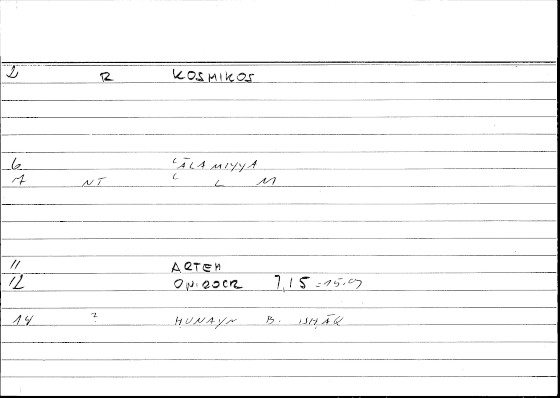 2 R KOSMIKOS
6 ʿĀLAMIYYA
7 NT ʿ L M
11 ARTEM
12 ONIROCR 7,15 =15.07
14 ? HUNAYN B. ISHĀQ